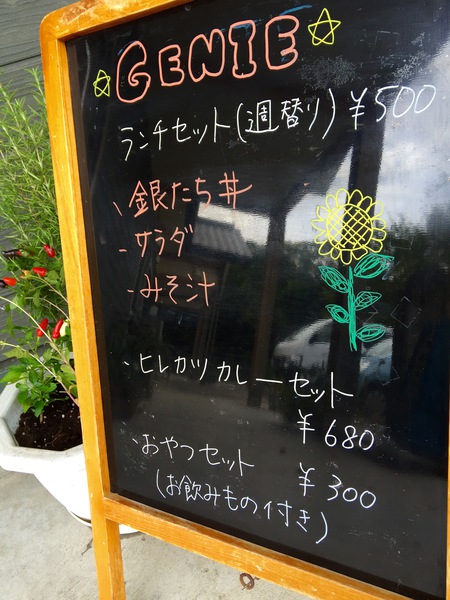 GENIE
ランチセット(週替り) ¥500
、銀だら丼
-サラダ
-みそ汁
、ヒレカツカレーセット
¥680
、おやつセット ¥300
(お飲みもの付き)